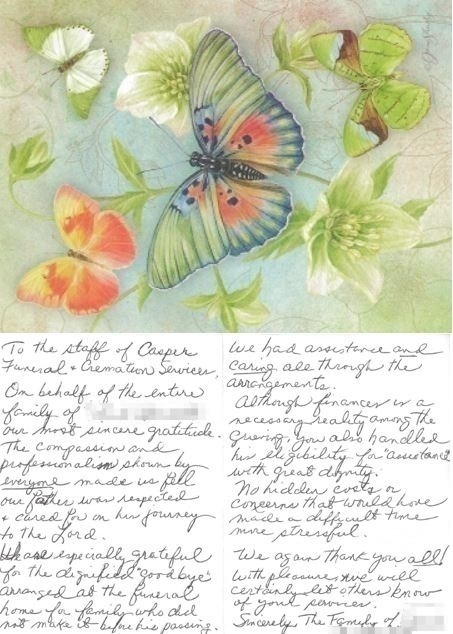 To the staff of Casper
Funeral & Cremation Services,
On behalf of the entire
family of
our most sincere gratitude.
The compassion and
professionalism shown by
everyone made us fell
our fathers was respected
& cared for on his journey
to the Lord.
We are especially grateful
for the dignified "goodbye"
arranged at the funeral
home for family who did
not make it before his passing.
We had assistance and
caring all through the
arrangements.
Although finances is a
necessary reality among the
grieving, you also handled
his eligibility for "assistance"
with great dignity.
No hidden costs or
concerns that would have
made a difficult time
more stressful.
We again thank you all!
With pleasure, we will
certainly let others know
of your services.
Sincerely The Family of